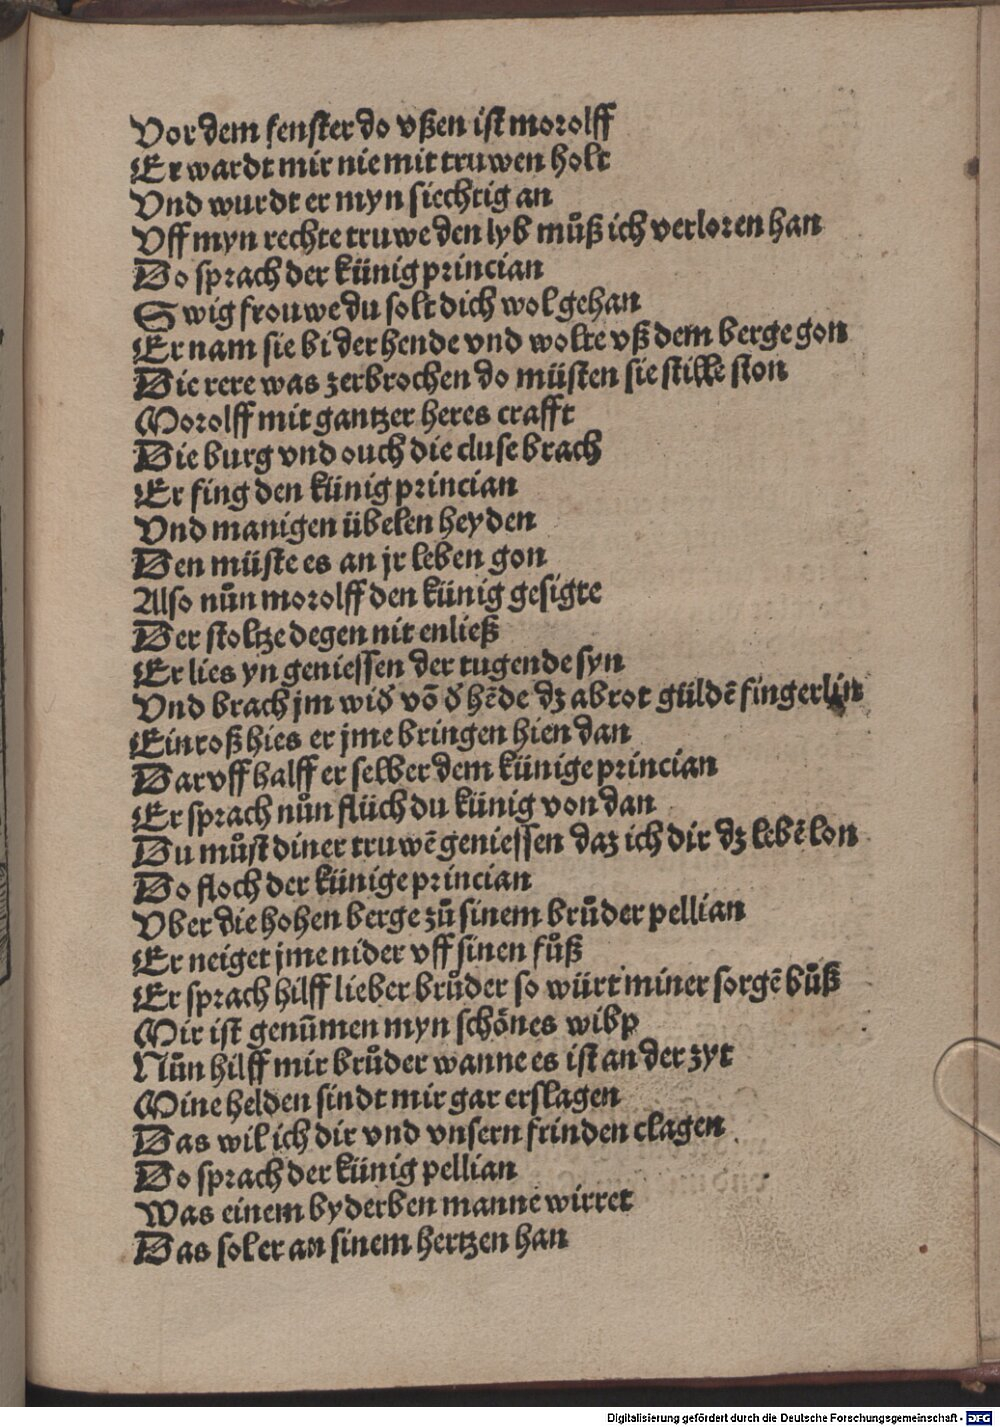 Vor dem fenster do vßen ist morolff
Er wardt mir nie mit truwen holt
Vnd wurdt er myn siechtig an
Vff myn rechte truwe den lyb můß ich verloren han
Do sprach der künig princian
Swig frouwe du solt dich wol gehan
Er nam sie bi der hende vnd wolte vß dem berge gon
Die rere was zerbrochen do müsten sie stille ston
Morolff mit gantzer heres crafft
Die burg vnd ouch die cluse brach
Er fing den künig princian
Vnd manigen übelen heyden
Den müste es an jr leben gon
Also nůn morolff den künig gesigte
Der stoltze degen nit enließ
Er lies yn geniessen der tugende syn
Vnd brach jm wid̛ võ d̛ hēde dz abrot güldē fingerlin
Ein roß hies er jme bringen hien dan
Dar vff halff er selber dem künige princian
Er sprach nůn flüch du künig von dan
Du můst diner truwē geniessen daz ich dir dz lebē lon
Do floch der künige princian
Vber die hohen berge zů sinem brůder pellian
Er neiget jme nider vff sinen fůß
Er sprach hilff lieber brůder so würt miner sorgē bůß
Mir ist genůmen myn schönes wibp
Nůn hilff mir brůder wanne es ist an der zyt
Mine helden sindt mir gar erslagen
Das wil ich dir vnd vnsern frinden clagen
Do sprach der künig pellian
Was einem byderben manne wirret
Das sol er an sinem hertzen han
Digitalisierung gefördert durch die Deutsche Forschungsgemeinschaft - DFG